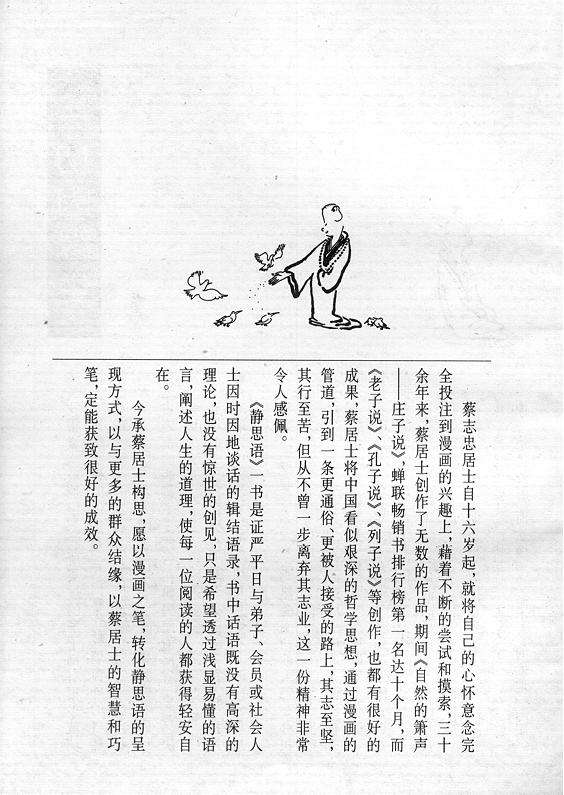 蔡志忠居士自十六岁起，就将自己的心怀意念完
全投注到漫画的兴趣上，藉着不断的尝试和摸索，三十
余年来，蔡居士创作了无数的作品，期间《自然的箫声
——庄子说》，蝉联畅销书排行榜第一名达十个月，而
《老子说》、《孔子说》、《列子说》等创作，也都有很好的
成果，蔡居士将中国看似艰深的哲学思想，通过漫画的
管道，引到一条更通俗、更被人接受的路上，其志至坚，
其行至苦，但从不曾一步离弃其志业，这一份精神非常
令人感佩。
《静思语》一书是证严平日与弟子、会员或社会人
士因时因地谈话的辑结语录，书中话语既没有高深的
理论，也没有惊世的创见，只是希望透过浅显易懂的语
言，阐述人生的道理，使每一位阅读的人都获得轻安自
在。
今承蔡居士构思，愿以漫画之笔，转化静思语的呈
现方式，以与更多的群众结缘，以蔡居士的智慧和巧
笔，定能获致很好的成效。